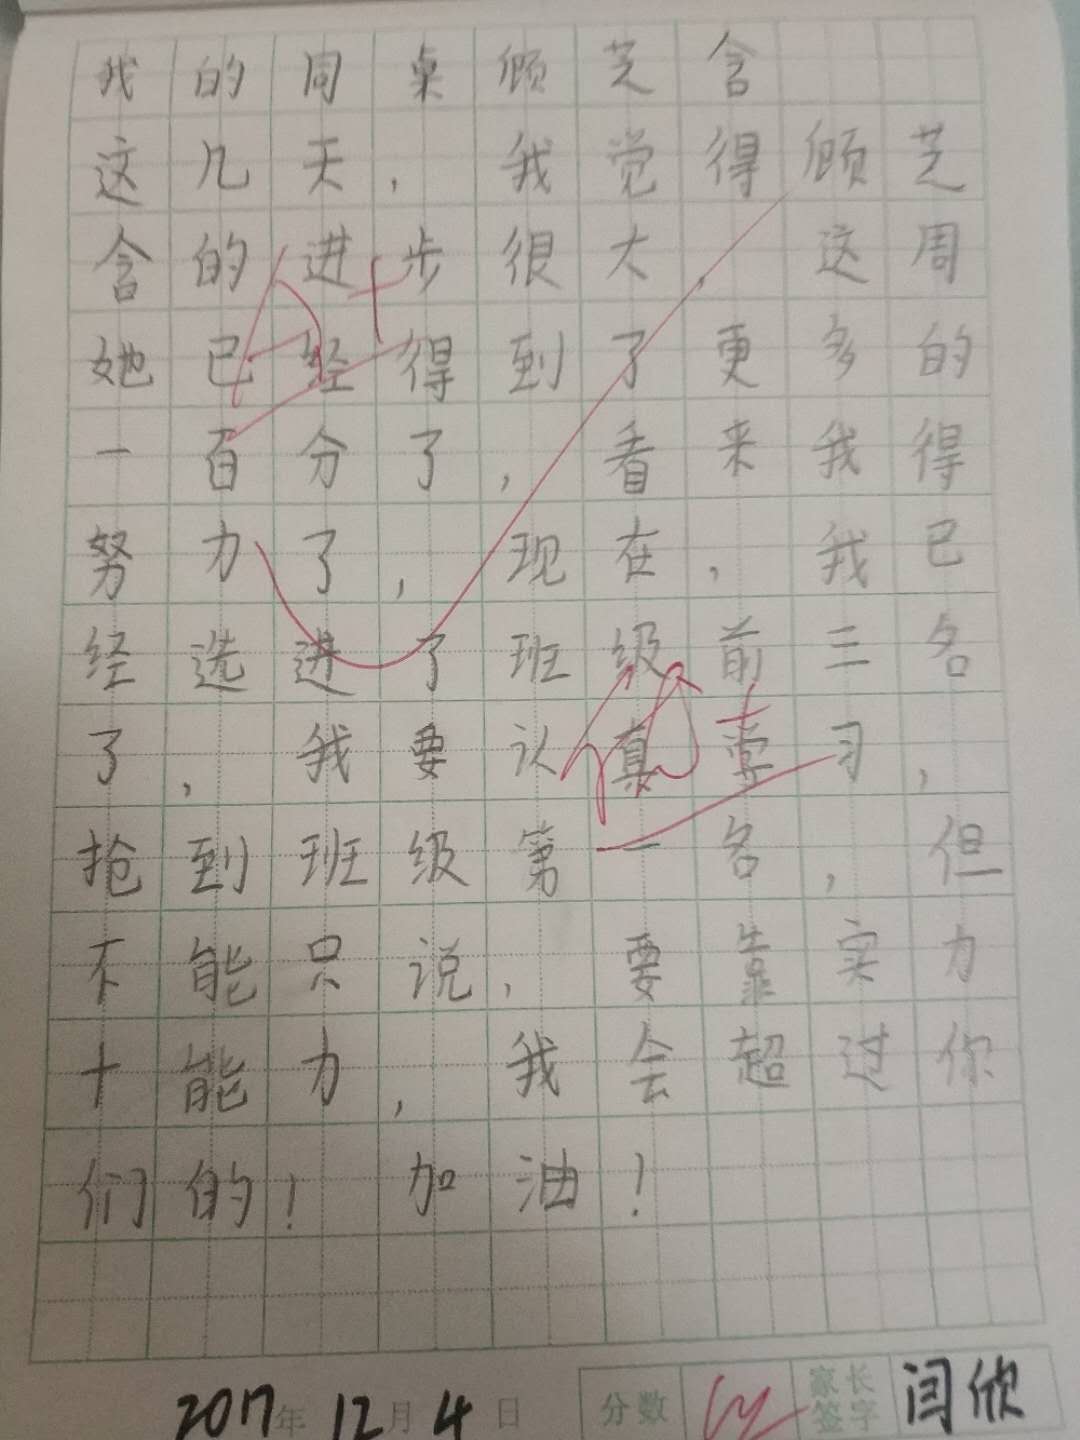 我的同桌顾芝含
这几天，我觉得顾芝
含的进步很大，这周
她已经得到了更多的
一百分了，看来我得
努力了，现在，我已
经选进了班级前三名
了，我要认真学习，
抢到班级第一名，但
不能只说，要靠实力
十能力，我会超过你
们的！加油！
2017年12月4日 分数 家长签字 闫欣